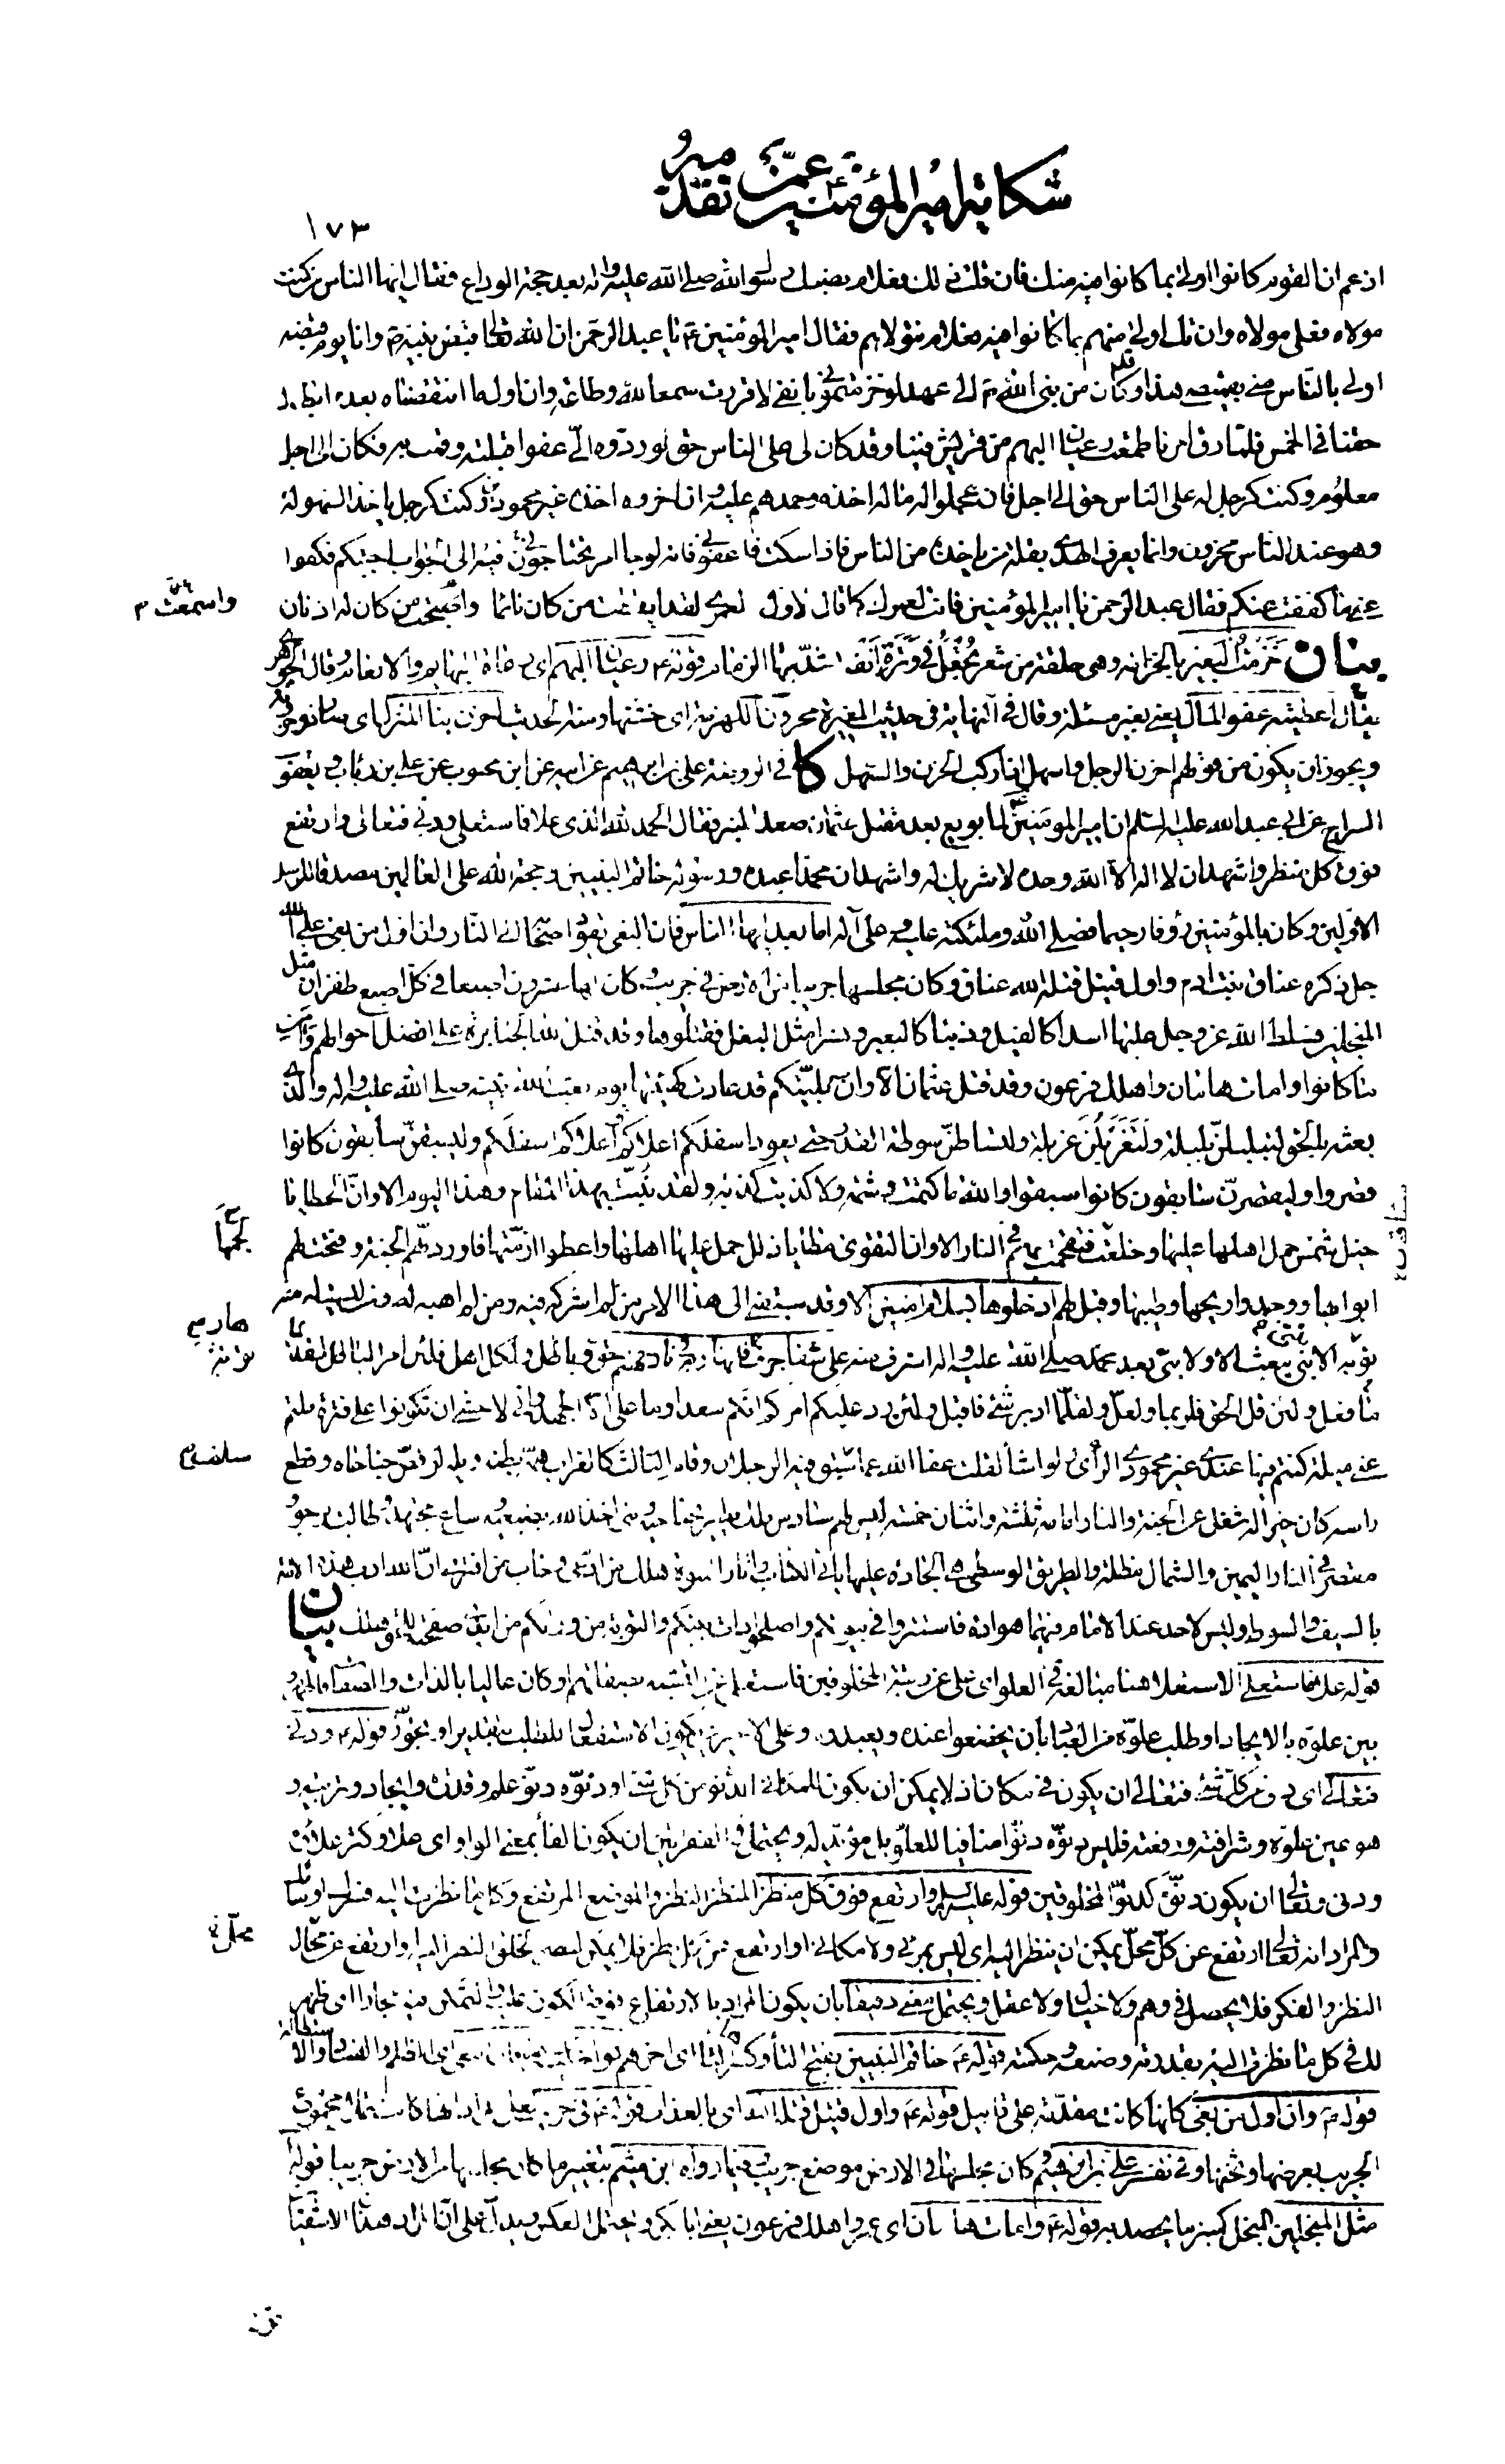 شكاية امير المؤمنين عمّن تقدمه
١٧٣
ازعم ان القوم كانوا اولى بما كانوا فيه منك فان قلت ذلك فعلام نصبك رسول الله صلى الله عليه واله بعد حجة الوداع فقال ايها الناس من كنت
مولاه فعلي مولاه وان تك اولى منهم بما كانوا فيه فعلام نتولاهم فقال امير المؤمنين ع يا عبد الرحمن ان الله تعالى قبض نبيه ص وانا يوم قبضه
اولى بالناس مني بقميصي هذا وقد كان من نبي الله ص الي عهد لو خزمتموني بانفي لاقررت سمعا لله وطاعة وان اول ما انتقصناه بعده ابطال
حقنا في الخمس فلما رق امرنا طمعت رعيان البهم من قريش فينا وقد كان لي على الناس حق لو ردوه الي عفوا قبلته وقمت به فكان الى اجل
معلوم وكنت كرجل له على الناس حق الى اجل فان عجلوا له ماله اخذه وحمدهم عليه وان اخروه اخذه غير محمودين وكنت كرجل ياخذ السهولة
وهو عند الناس محزون وانما يعرف الهدى بقلة من ياخذه من الناس فاذا سكت فاعفوني فانه لو جاء امر تحتاجون فيه الى الجواب اجبتكم فكفوا
عني ما كففت عنكم فقال عبد الرحمن يا امير المؤمنين فانت لعمرك كما قال الاول لعمري لقد ايقظت من كان نائما واسمعت من كان له اذنان
واسمعت م
بيان خزمت البعير بالخزامة وهي حلقة من شعر تجعل في وترة انفه يشد بها الزمام قوله ع رعيان البهم اي رعاة البهايم والانعام قال الجوهري
يقال اعطيته عفو المال يعني بغير مسئلة وقال في النهاية في حديث المغيرة محزون اللهزمة اي خشنها ومنه الحديث احزن بنا المنزل اي صار ذو حزونة
ويجوز ان يكون من قولهم احزن الرجل واسهل اذا ركب الحزن والسهل كا في الروضة علي بن ابراهيم عن ابيه عن ابن محبوب عن علي بن رئاب ويعقوب
السراج عن ابي عبد الله عليه السلم ان امير المؤمنين ع لما بويع بعد مقتل عثمان صعد المنبر فقال الحمد لله الذي علا فاستعلى ودنى فتعالى وارتفع
فوق كل منظر واشهد ان لا اله الا الله وحده لا شريك له واشهد ان محمدا عبده ورسوله خاتم النبيين وحجة الله على العالمين مصدقا للرسل
الاولين وكان بالمؤمنين رؤفا رحيما فصلى الله وملئكته عليه وعلى آله اما بعد ايها الناس فان البغي يقود اصحابه الى النار وان اول من بغى على الله
جل ذكره عناق بنت ادم واول قتيل قتله الله عناق وكان مجلسها جريبا من الارض في جريب كان لها عشرون اصبعا في كل اصبع ظفران مثل
المنجلين فسلط الله عز وجل عليها اسدا كالفيل وذئبا كالبعير ونسرا مثل البغل فقتلوها وقد قتل الله الجبابرة على افضل احوالهم وآمن
ما كانوا وامات هامان واهلك فرعون وقد قتل عثمان الا وان بليتكم قد عادت كهيئتها يوم بعث الله نبيه صلى الله عليه واله والذي
بعثه بالحق لتبلبلن بلبلة ولتغربلن غربلة ولتساطن سوطة القدر حتى يعود اسفلكم اعلاكم واعلاكم اسفلكم وليسبقن سابقون كانوا
قصروا وليقصرن سابقون كانوا سبقوا والله ما كتمت وشمة ولا كذبت كذبة ولقد نبئت بهذا المقام وهذا اليوم الا وان الخطايا
خيل شمس حمل اهلها عليها وخلعت فتقحمت بهم في النار الا وان التقوى مطايا ذلل حمل عليها اهلها واعطوا ازمتها فاوردتهم الجنة وفتحت لهم
لجمها
ابوابها ووجدوا ريحها وطيبها وقيل لهم ادخلوها بسلام امنين الا وقد سبقني الى هذا الامر من لم اشركه فيه ومن لم اهبه له ومن ليست له منه
توبة الا بنبي يبعث الا ولا نبي بعد محمد صلى الله عليه واله اشرف منه على شفا جرف هار فانهار به في نار جهنم حق وباطل ولكل اهل فلئن امر الباطل لقديما
ما فعل ولئن قل الحق فلربما ولعل ولقلما ادبر شئ فاقبل ولئن رد عليكم امركم انكم سعداء وما علي الا الجهد واني لاخشى ان تكونوا على فترة ملتم
عني ميلة كنتم فيها عندي غير محمودي الرأي ولو اشاء لقلت عفا الله عما سلف سبق فيه الرجلان وقام الثالث كالغراب همه بطنه ويله لو قص جناحاه وقطع
راسه كان خيرا له شغل عن الجنة والنار امامه ثلثة واثنان خمسة ليس لهم سادس ملك يطير بجناحيه ونبي اخذ الله بضبعيه وساع مجتهد وطالب يرجو
مقصر في النار اليمين والشمال مظلة والطريق الوسطى هي الجادة عليها باقي الكتاب واثار النبوة هلك من ادعى وخاب من افترى ان الله ادب هذه الامة
بالسيف والسوط وليس لاحد عند الامام فيهما هوادة فاستتروا في بيوتكم واصلحوا ذات بينكم والتوبة من ورائكم من ابدى صفحته للحق هلك بيان
قوله علا فاستعلى الاستعلاء هنا مبالغة في العلو اي علا عن رتبة المخلوقين فاستعلى عن التشبه بصفاتهم او كان عاليا بالذات والصفات فاظهر
بين علوه بالايجاد او طلب علوه من العباد بأن يخضعوا عنده ويعبدوه وعلى الاخيرين يكون الاستفعال للطلب بتقدير او تجوز قوله ع ودنى
فتعالى اي دنى من كل شئ فتعالى ان يكون في مكان اذ لا يمكن ان يكون للمكاني الدنو من كل شئ او دنوه دنو علم وقدرة وايجاد وتربية و
هو عين علوه وشرافته ورفعته فليس دنوه دنوا منافيا للعلو بل مؤيد له ويحتمل في الفقرتين ان يكون الفاء بمعنى الواو اي علا وكثر علاؤه
ودنى وتعالى ان يكون دنوه كدنو المخلوقين قوله عليه السلم وارتفع فوق كل منظر المنظر النظر والموضع المرتفع وكلما نظرت اليه فسرك او ساءك
والمراد انه تعالى ارتفع عن كل محل يمكن ان ينظر اليه اي ليس بمرئي ولا مكاني او ارتفع عن كل نظر فلا يمكن لبصر الخلق النظر اليه او ارتفع عن محال
النظر والفكر فلا يحصل في وهم ولا خيال ولا عقل ويحتمل معنى دقيقا بان يكون المراد بالارتفاع فوقه الكون عليه والتمكن فيه مجازا اي ظهر
لك في كل ما نظرت اليه بقدرته وصنعه وحكمته قوله ع خاتم النبيين بفتح التاء وكسرها
قوله ع وان اول من بغى كانها كانت مقدمة على قابيل قوله ع واول قتيل قتله الله اي بالعذاب
الجريب بعرضها وثخنها وفي تفسير علي بن ابراهيم كان مجلسها في الارض موضع جريب وفيما رواه ابن ميثم بتغيير ما كان مجلسها من الارض جريبا قوله
مثل المنجلين المنجل كمنبر ما يحصد به قوله ع وامات هامان اي عمر واهلك فرعون يعني ابا بكر ويحتمل العكس ويدل على ان المراد هذا الاشقيا